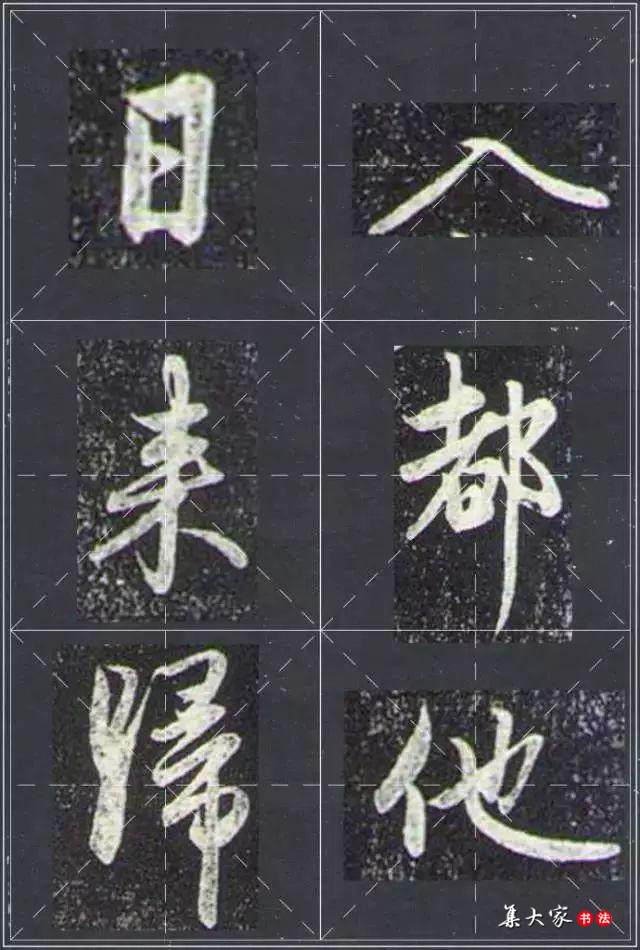 入都他
日来帰
集大家 书法